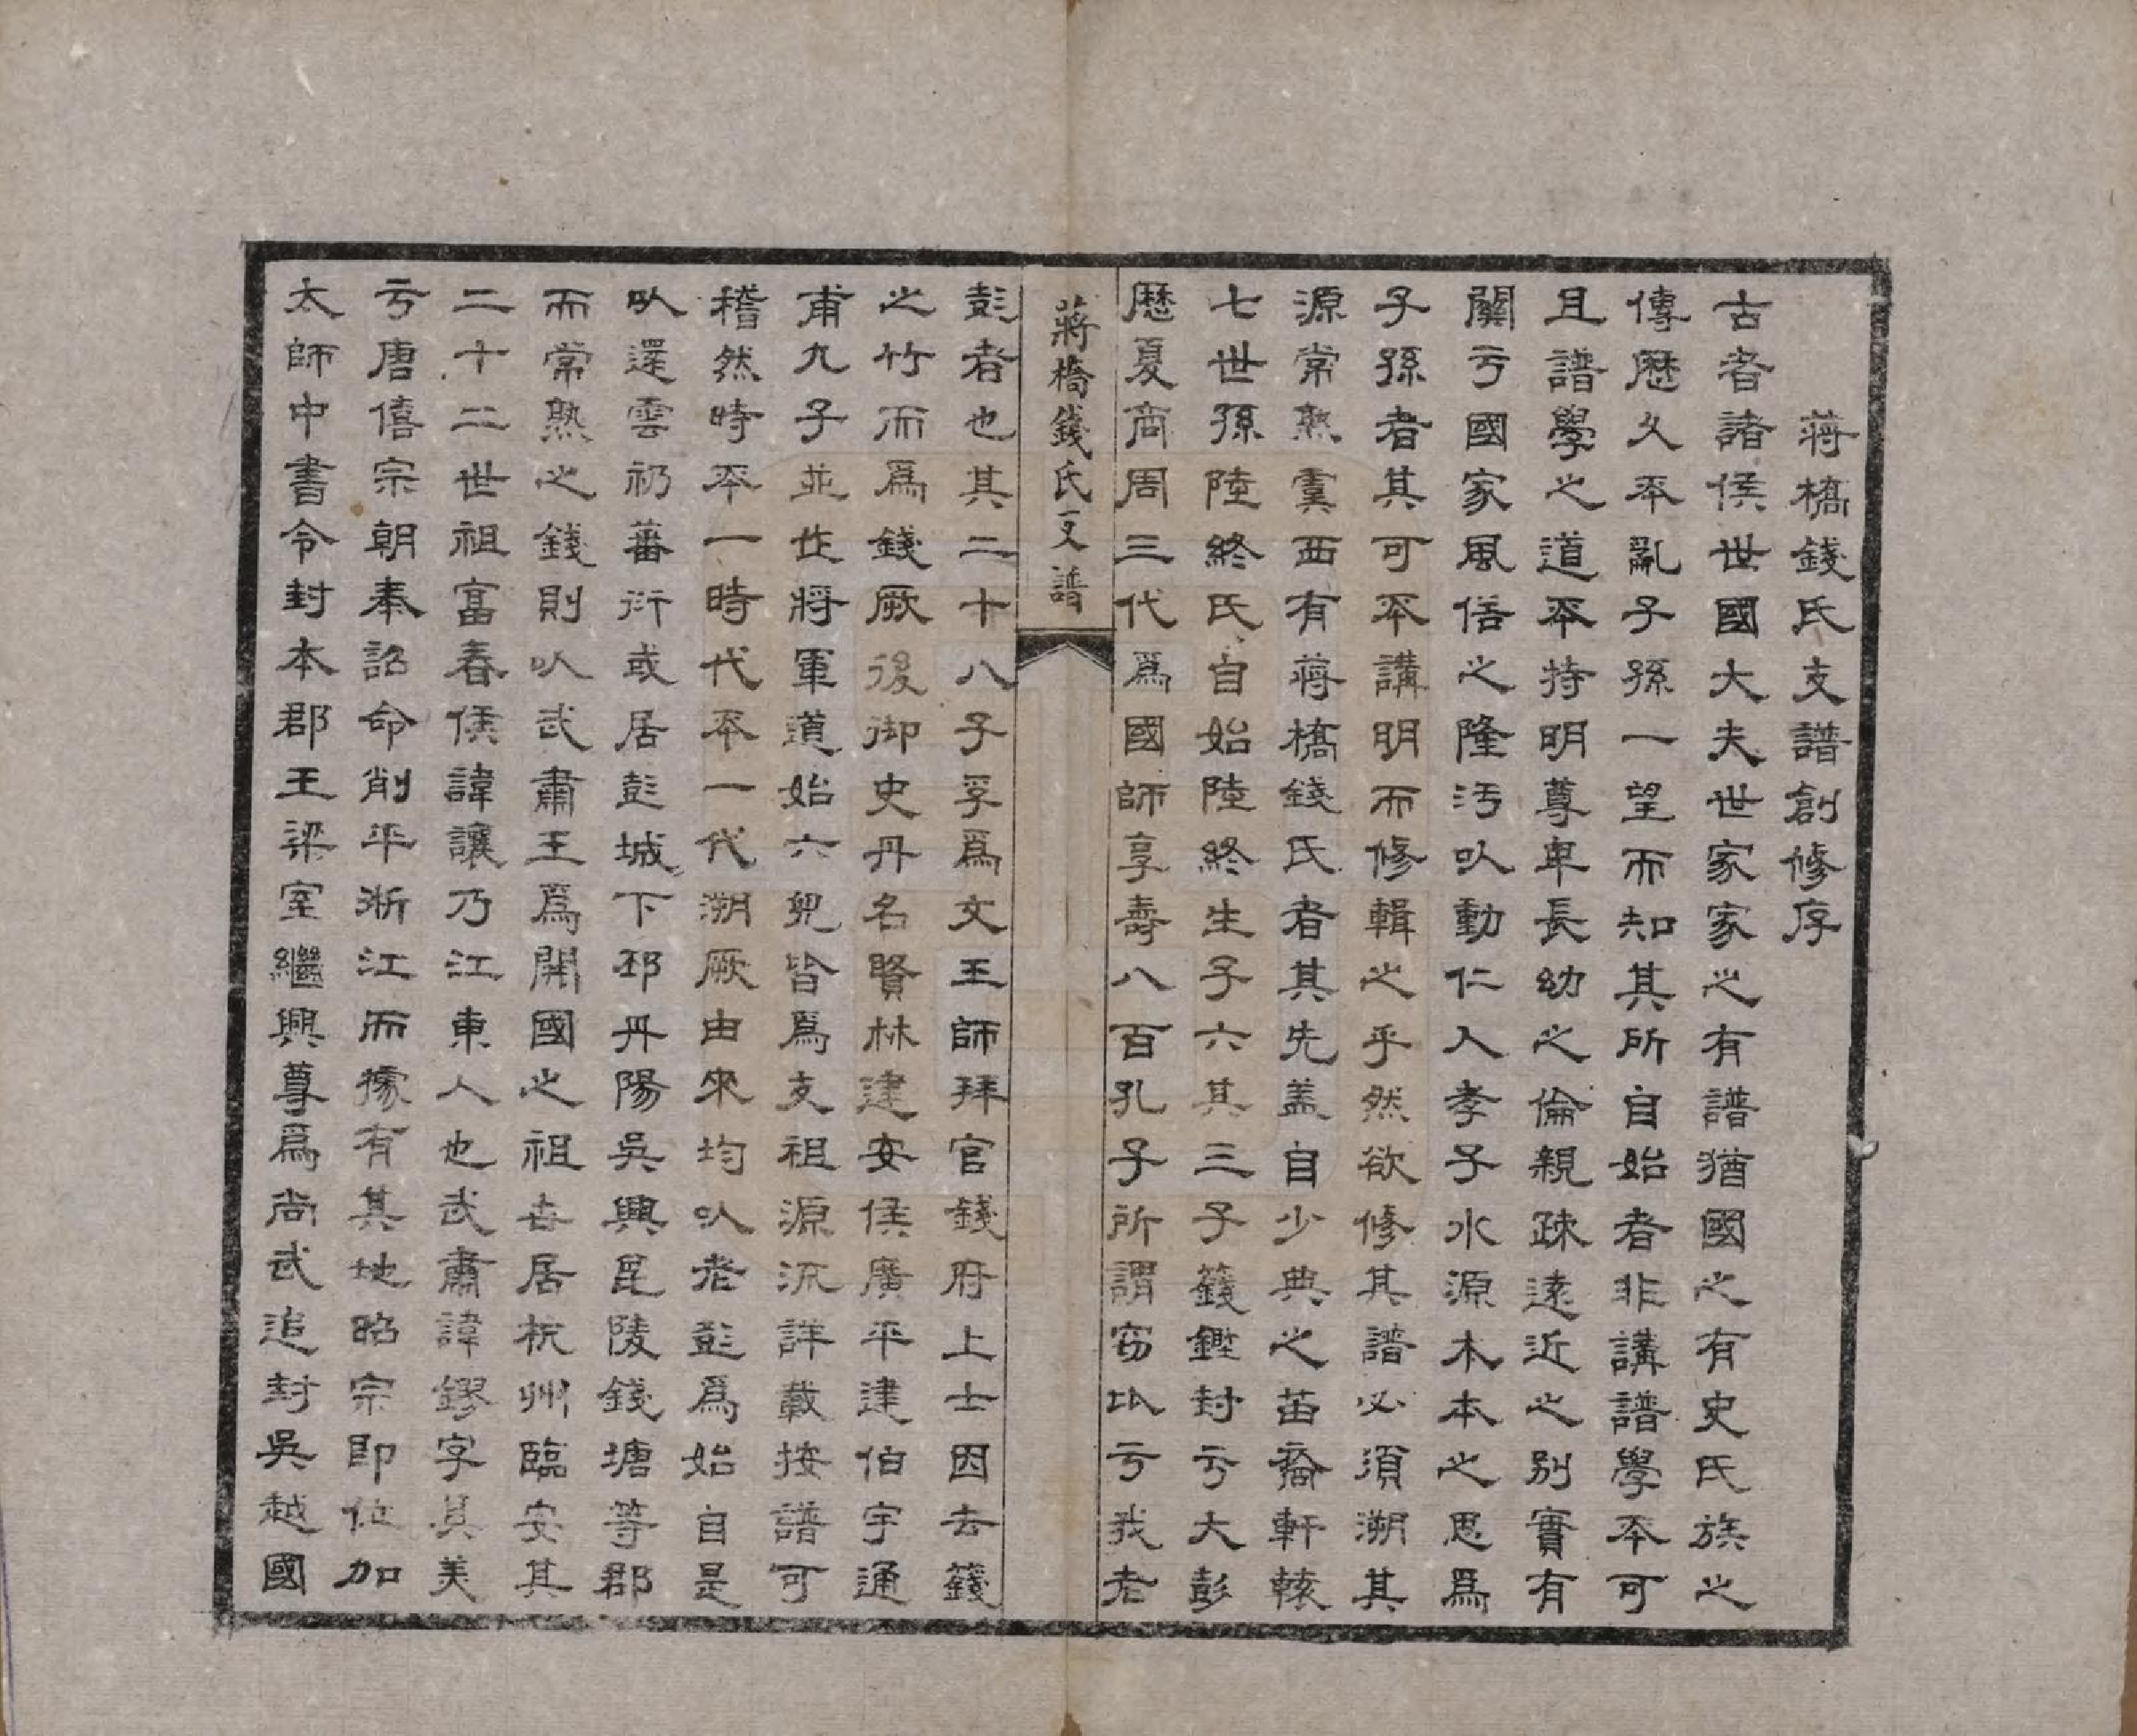 蔣橋錢氏支譜創修序
古者諸侯世國大夫世家家之有譜猶國之有史氏族之
傳歷久不亂子孫一望而知其所自始者非講譜學不可
且譜學之道不特明尊卑長幼之倫親疎遠近之別實有
關亏國家風俗之隆污㕥動仁人孝子水源木本之思爲
子孫者其可不講明而修輯之乎然欲修其譜必須溯其
源常熟虞西有蔣橋錢氏者其先盖自少典之苖裔軒轅
七世孫陸終氏自始陸終生子六其三子籛鏗封亏大彭
歷夏商周三代爲國師享壽八百孔子所謂窃比亏我老
蔣橋錢氏支譜
彭者也其二十八子孚爲文王師拜官錢府上士因去籛
之竹而爲錢厥後御史丹名賢林建安侯廣平建伯宇通
甫九子並作將軍道始六兒皆爲支祖源流詳載按譜可
稽然時不一時代不一代溯厥由來均㕥老彭爲始自是
㕥還雲礽蕃衍或居彭城下邳丹陽吳興毘陵錢塘等郡
而常熟之錢則㕥武肅王爲開國之祖丗居杭州臨安其
二十二世祖富春侯諱讓乃江東人也武肅諱鏐字具美
亏唐僖宗朝奉詔命削平浙江而㨿有其地昭宗即位加
太師中書令封本郡王梁室繼興尊爲尚武追封吳越國